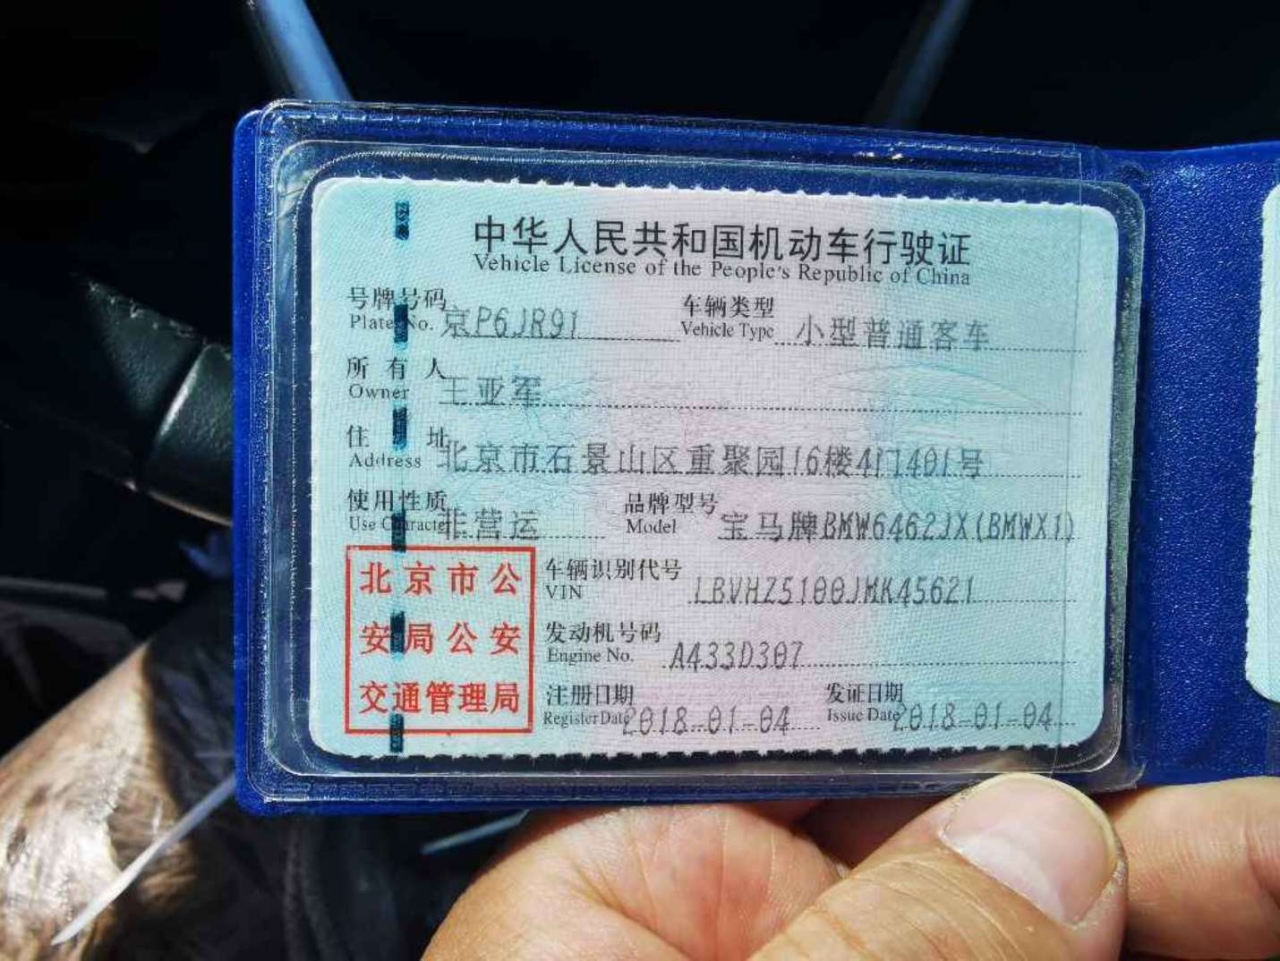 中华人民共和国机动车行驶证
Vehicle License of the People's Republic of China
号牌号码 京P6JR91 车辆类型 小型普通客车
Plate No. Vehicle Type
所有人 王亚军
Owner
住址 北京市石景山区重聚园16楼4门1401号
Address
使用性质 非营运 品牌型号 宝马牌BMW6462JX(BMWX1)
Use Character Model
北京市公
安局公安
交通管理局
车辆识别代号 LBVHZ5100JMK45621
VIN
发动机号码 A433D307
Engine No.
注册日期 2018-01-04 发证日期 2018-01-04
Register Date Issue Date